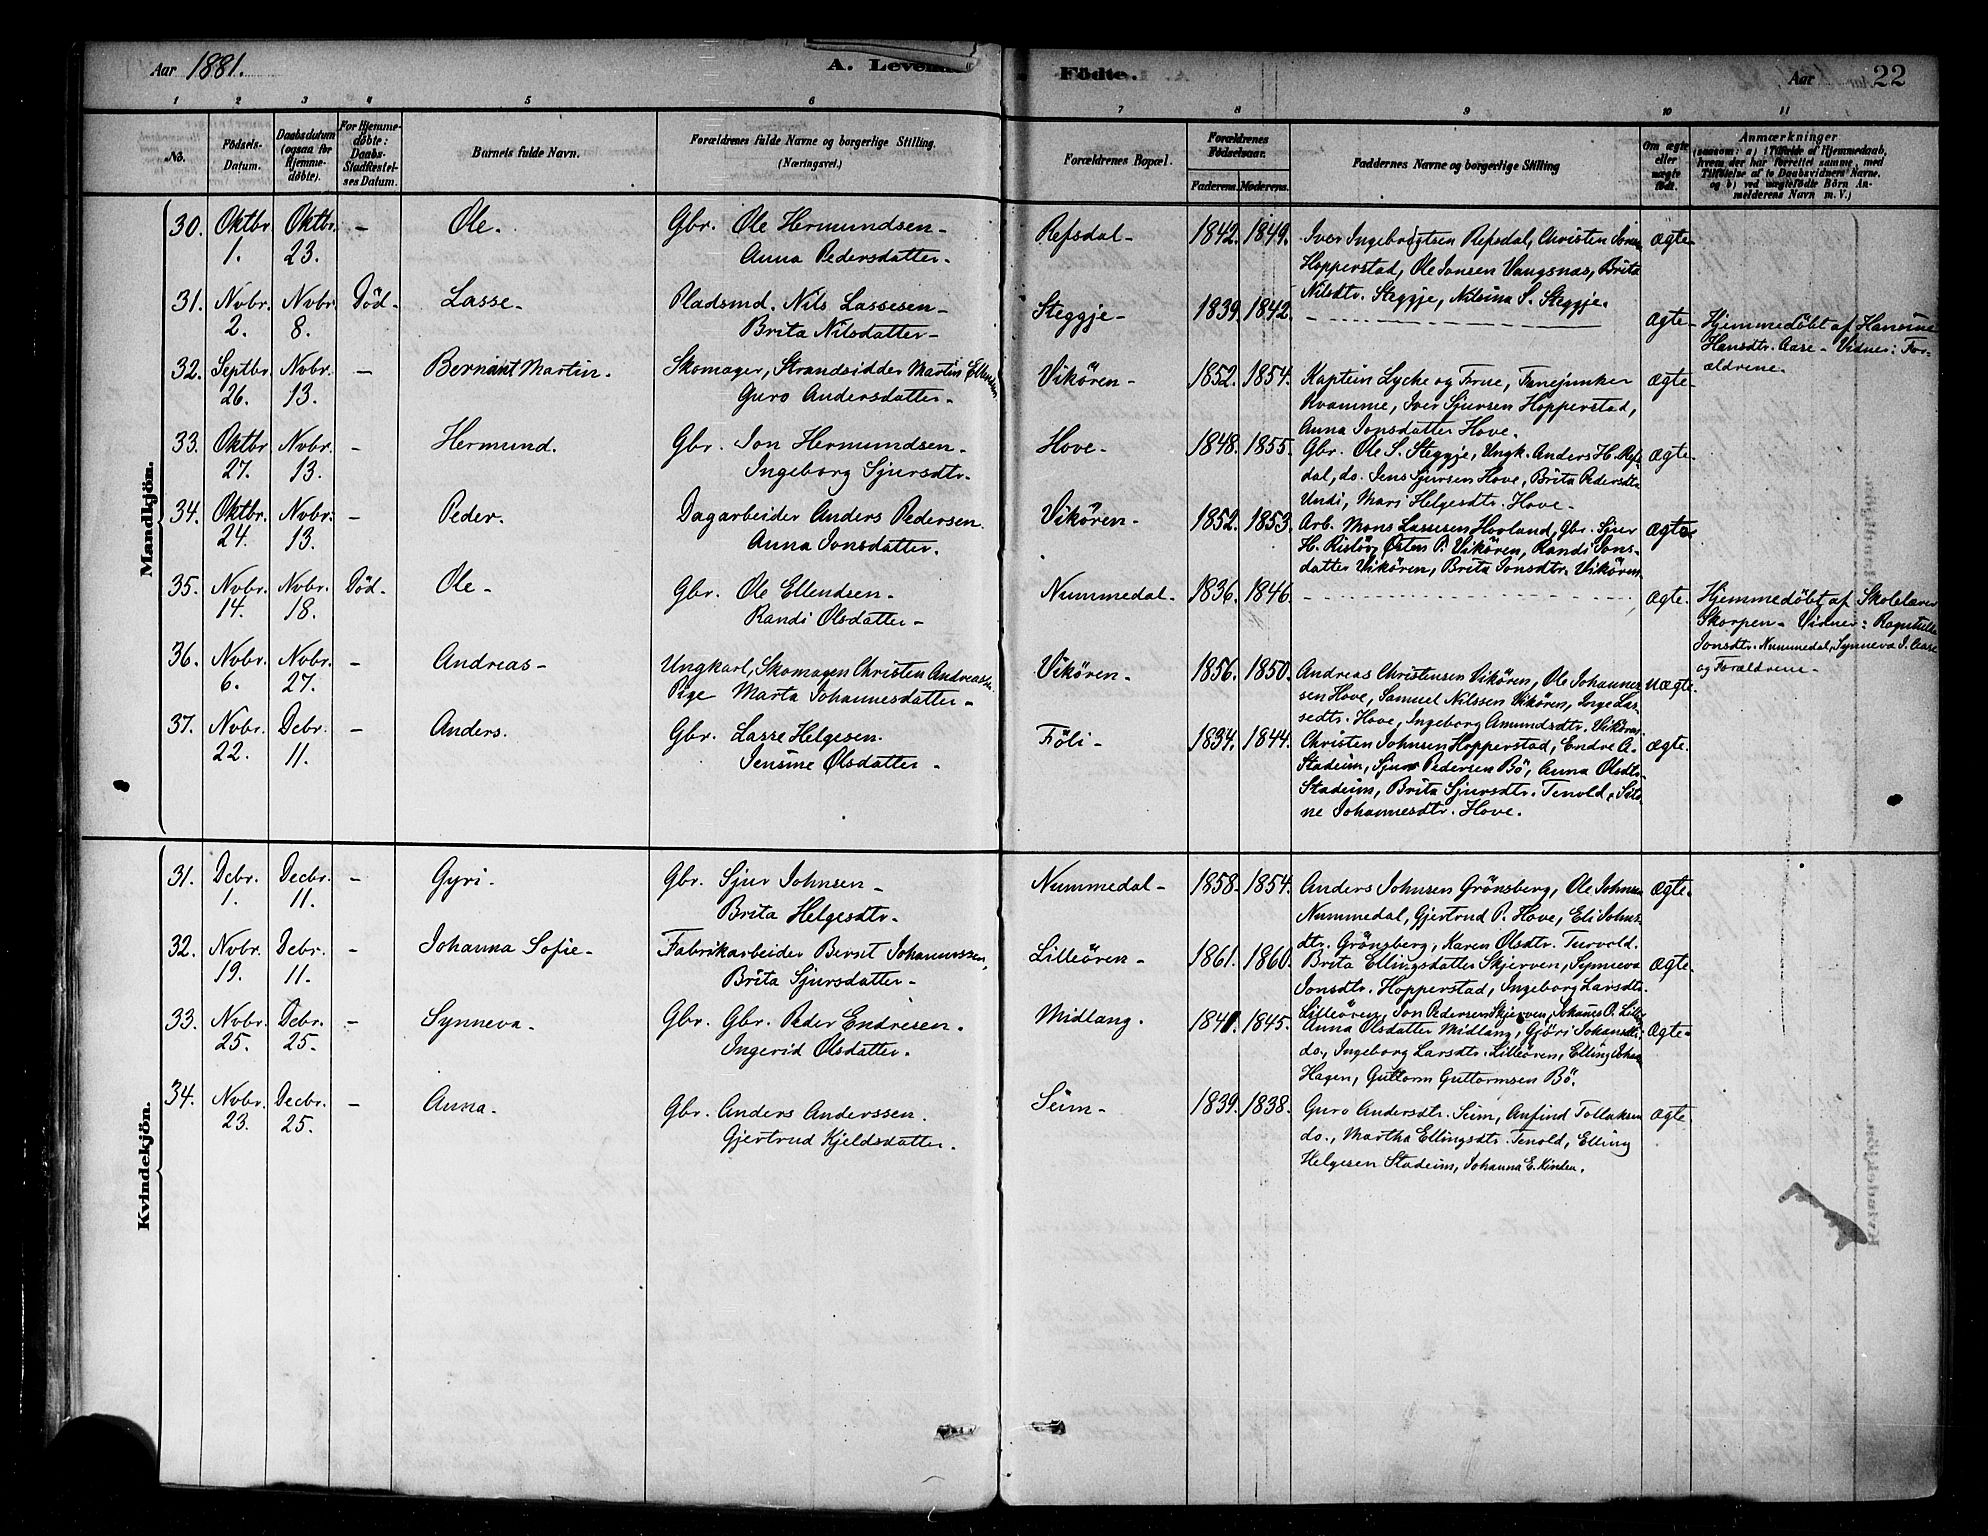 Aar 1881.
A. Levende
Födte.
Aar
22
1 2 3 4 5 6 7 8 9 10 11
No.
Födsels-Datum.
Daabsdatum (ogsaa for Hjemme-döbte).
For Hjemme-döbte: Daabs-Stadfæstel-ses Datum.
Barnets fulde Navn.
Forældrenes fulde Navne og borgerlige Stilling.
(Næringsvei.)
Forældrenes Bopæl.
Forældrenes Födselsaar.
Faderens. Moderens.
Faddernes Navne og borgerlige Stilling
Om ægte eller uægte födt.
Anmærkninger
(saasom: a) i Tilfælde af Hjemmedaab,
hvem der har forrettet samme, med
Tilföielse af to Daabsvidners Navne,
og b) ved uægtefödte Börn An-
melderens Navn m. V.)
Mandkjön.
30. Oktbr. 1. Oktbr. 23. – Ole. Gbr. Ole Hermundsen –
Anna Pedersdatter –
Refsdal – 1842. 1849. Iver Ingebrigtsen Refsdal, Christen Jons
Hopperstad, Ole Jonsen Vangsnæs, Brita
Nilsdtr. Steggje, Nilsina S. Steggje.
ægte –
31. Nvbr. 2. Nvbr. 8. Död – Lasse – Pladsmd. Nils Lassesen –
Brita Nilsdatter –
Steggje – 1839. 1842. – – – ægte –
Hjemmedöbt af Hansine
Hansdtr. Aase – Vidner: For-
ældrene.
32. Septbr. 26. Nvbr. 13. – Bernant Martin. Skomager, Strandsidder Martin Ellensen
Guro Andersdatter –
Vikören – 1852. 1854. Kaptein Lycke og Frue, Fanejunker
Kvamme, Iver Sjursen Hopperstad,
Anna Jonsdatter Hove.
ægte –
33. Oktbr. 27. Nvbr. 13. – Hermund. Gbr. Jon Hermundsen –
Ingeborg Sjursdtr.
Hove – 1848. 1855. Gbr. Ole S. Steggje, Ungk. Anders H. Refs-
dal, do. Jens Sjursen Hove, Brita Pedersdtr
Undi, Mari Helgesdtr. Hove –
ægte –
34. Oktbr. 24. Nvbr. 13. – Peder. Dagarbeider Anders Pedersen
Anna Jonsdatter.
Vikören – 1852. 1853. Arb. Mons Lassesen Hovland, Gbr. Sjur
H. Risløv, Østen P. Vikören, Randi Jons-
datter Vikören, Brita Jonsdtr. Vikören
ægte
35. Nvbr. 14. Nvbr. 18. Död. Ole – Gbr. Ole Ellendsen –
Randi Olsdatter –
Nummedal – 1836. 1846. – – – ægte.
Hjemmedöbt af Skolelærer
Skorpen – Vidner: Ragnilla
Jonsdtr. Nummedal, Synneva J. Aase
og Forældrene –
36. Nvbr. 6. Nvbr. 27. – Andreas – Ungkarl, Skomager Christen Andreass.
Pige Marta Johannesdatter –
Vikören – 1856. 1850. Andreas Christensen Vikören, Ole Johannes
sen Hove, Samuel Nilssen Vikören, Inge Las-
sedtr. Hove, Ingeborg Amundsdtr. Vikören
uægte
37. Nvbr. 22. Debr. 11. – Anders. Gbr. Lasse Helgesen.
Jensine Olsdatter –
Föli – 1834. 1844. Christen Johnsen Hopperstad, Endre A.
Stadeim, Sjur Pedersen Bö, Anna Olsdtr.
Stadeim, Brita Sjursdtr. Tenold, Sito-
ne Johannesdtr. Hove.
ægte.
Kvindekjön.
31. Debr. 1. Decbr. 11. – Gyri – Gbr. Sjur Johnsen –
Brita Helgesdtr –
Nummedal – 1858. 1854. Anders Johnsen Grönsberg, Ole Johnsen
Nummedal, Gjertrud P. Hove, Eli Johns-
dtr. Grönsberg, Karen Olsdtr. Turvold.
ægte –
32. Nvbr. 19. Debr. 11. – Johanna Sofie – Fabrikarbeider Bernt Johannessen,
Brita Sjursdatter –
Lilleören – 1861. 1860. Brita Ellingsdatter Skjerven, Synneva
Jonsdtr. Hopperstad, Ingeborg Larsdtr.
Lilleören, Jon Pedersen Skjerven, Johans O. Lill-
ægte –
33. Nvbr. 25. Debr. 25. – Synneva – Gbr. Gbr. Peder Endresen.
Ingerid Olsdatter.
Midlang. 1841. 1845. Anna Olsdatter Midlang, Gjöri Johansdtr.
do., Ingeborg Larsdtr. Lilleören, Elling Johan
Hagen, Guttorm Guttormsen Bö.
ægte –
34. Nvbr. 23. Decbr. 25. – Anna. Gbr. Anders Anderssen.
Gjertrud Kjeldsdatter.
Seim – 1839. 1838. Guro Andersdtr. Seim, Anfind Tollaksen
do., Martha Ellingsdtr. Tenold, Elling
Helgesen Stadeim, Johanna E. Kinden.
ægte